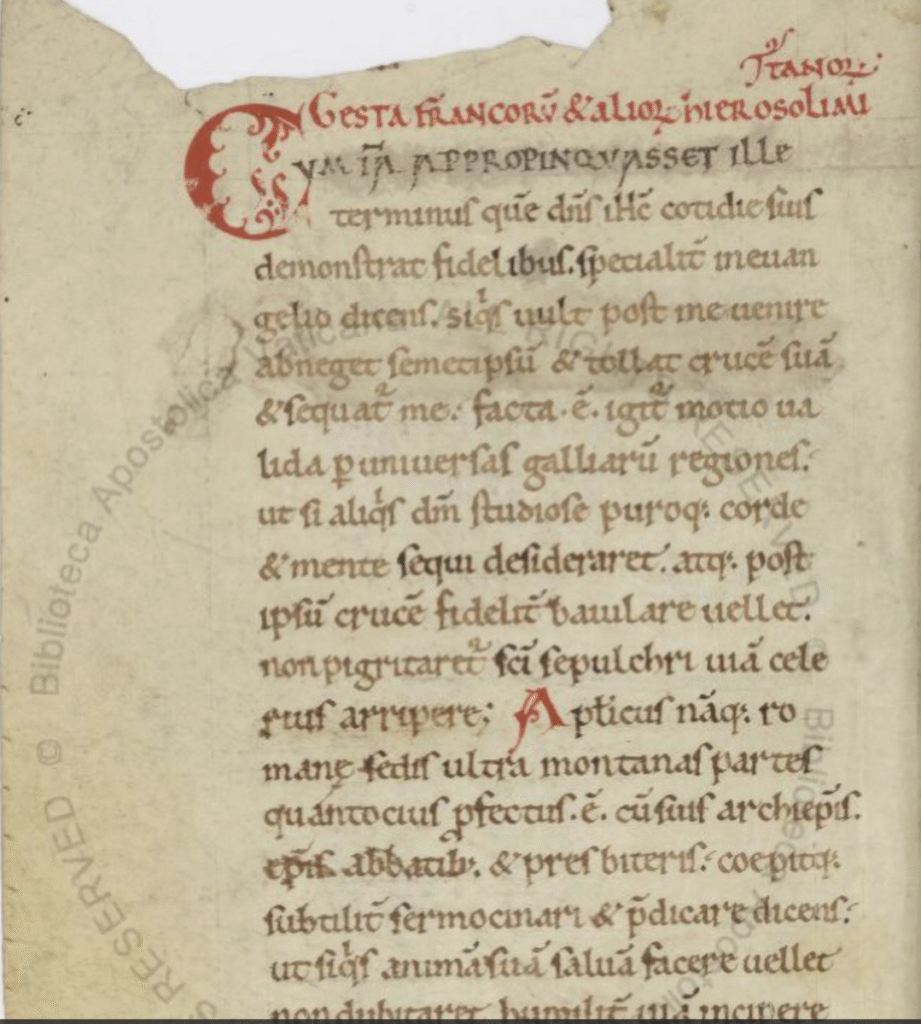 Gesta francorũ & alioꝝ hierosolimi
ꞇtanoꝝ.
Cvm iã appropinqvasset ille
terminus quẽ dñs ihc̃ cotidie suis
demonstrat fidelibus. specialit̃ in euan
gelio dicens. siq̇s uult post me uenire
abneget semetipsũ & tollat crucẽ suã
& sequat᷑ me. facta .ẽ. igit᷑ motio ua
lida ꝑ uniuersas galliarũ regiones.
ut si aliq̇s dm̃ studiose puroq; corde
& mente sequi desideraret. atq; post
ipsũ crucẽ fidelit̃ baiulare uellet.
non pigritaret᷑ sc̃i sepulchri uiã cele
rius arripere; Apl̃icus nãq; ro
manę sedis ultra montanas partes
quantocius ꝓfectus .ẽ. cũ suis archiep̃is.
ep̃is. abbatib; & presbiteris. coepitq;
subtilit̃ sermocinari & p̃dicare dicens.
ut siq̇s animã suã saluã facere uellet
non dubitaret humilit̃ uiã incipere
RIGHTS RESERVED © Biblioteca Apostolica Vaticana